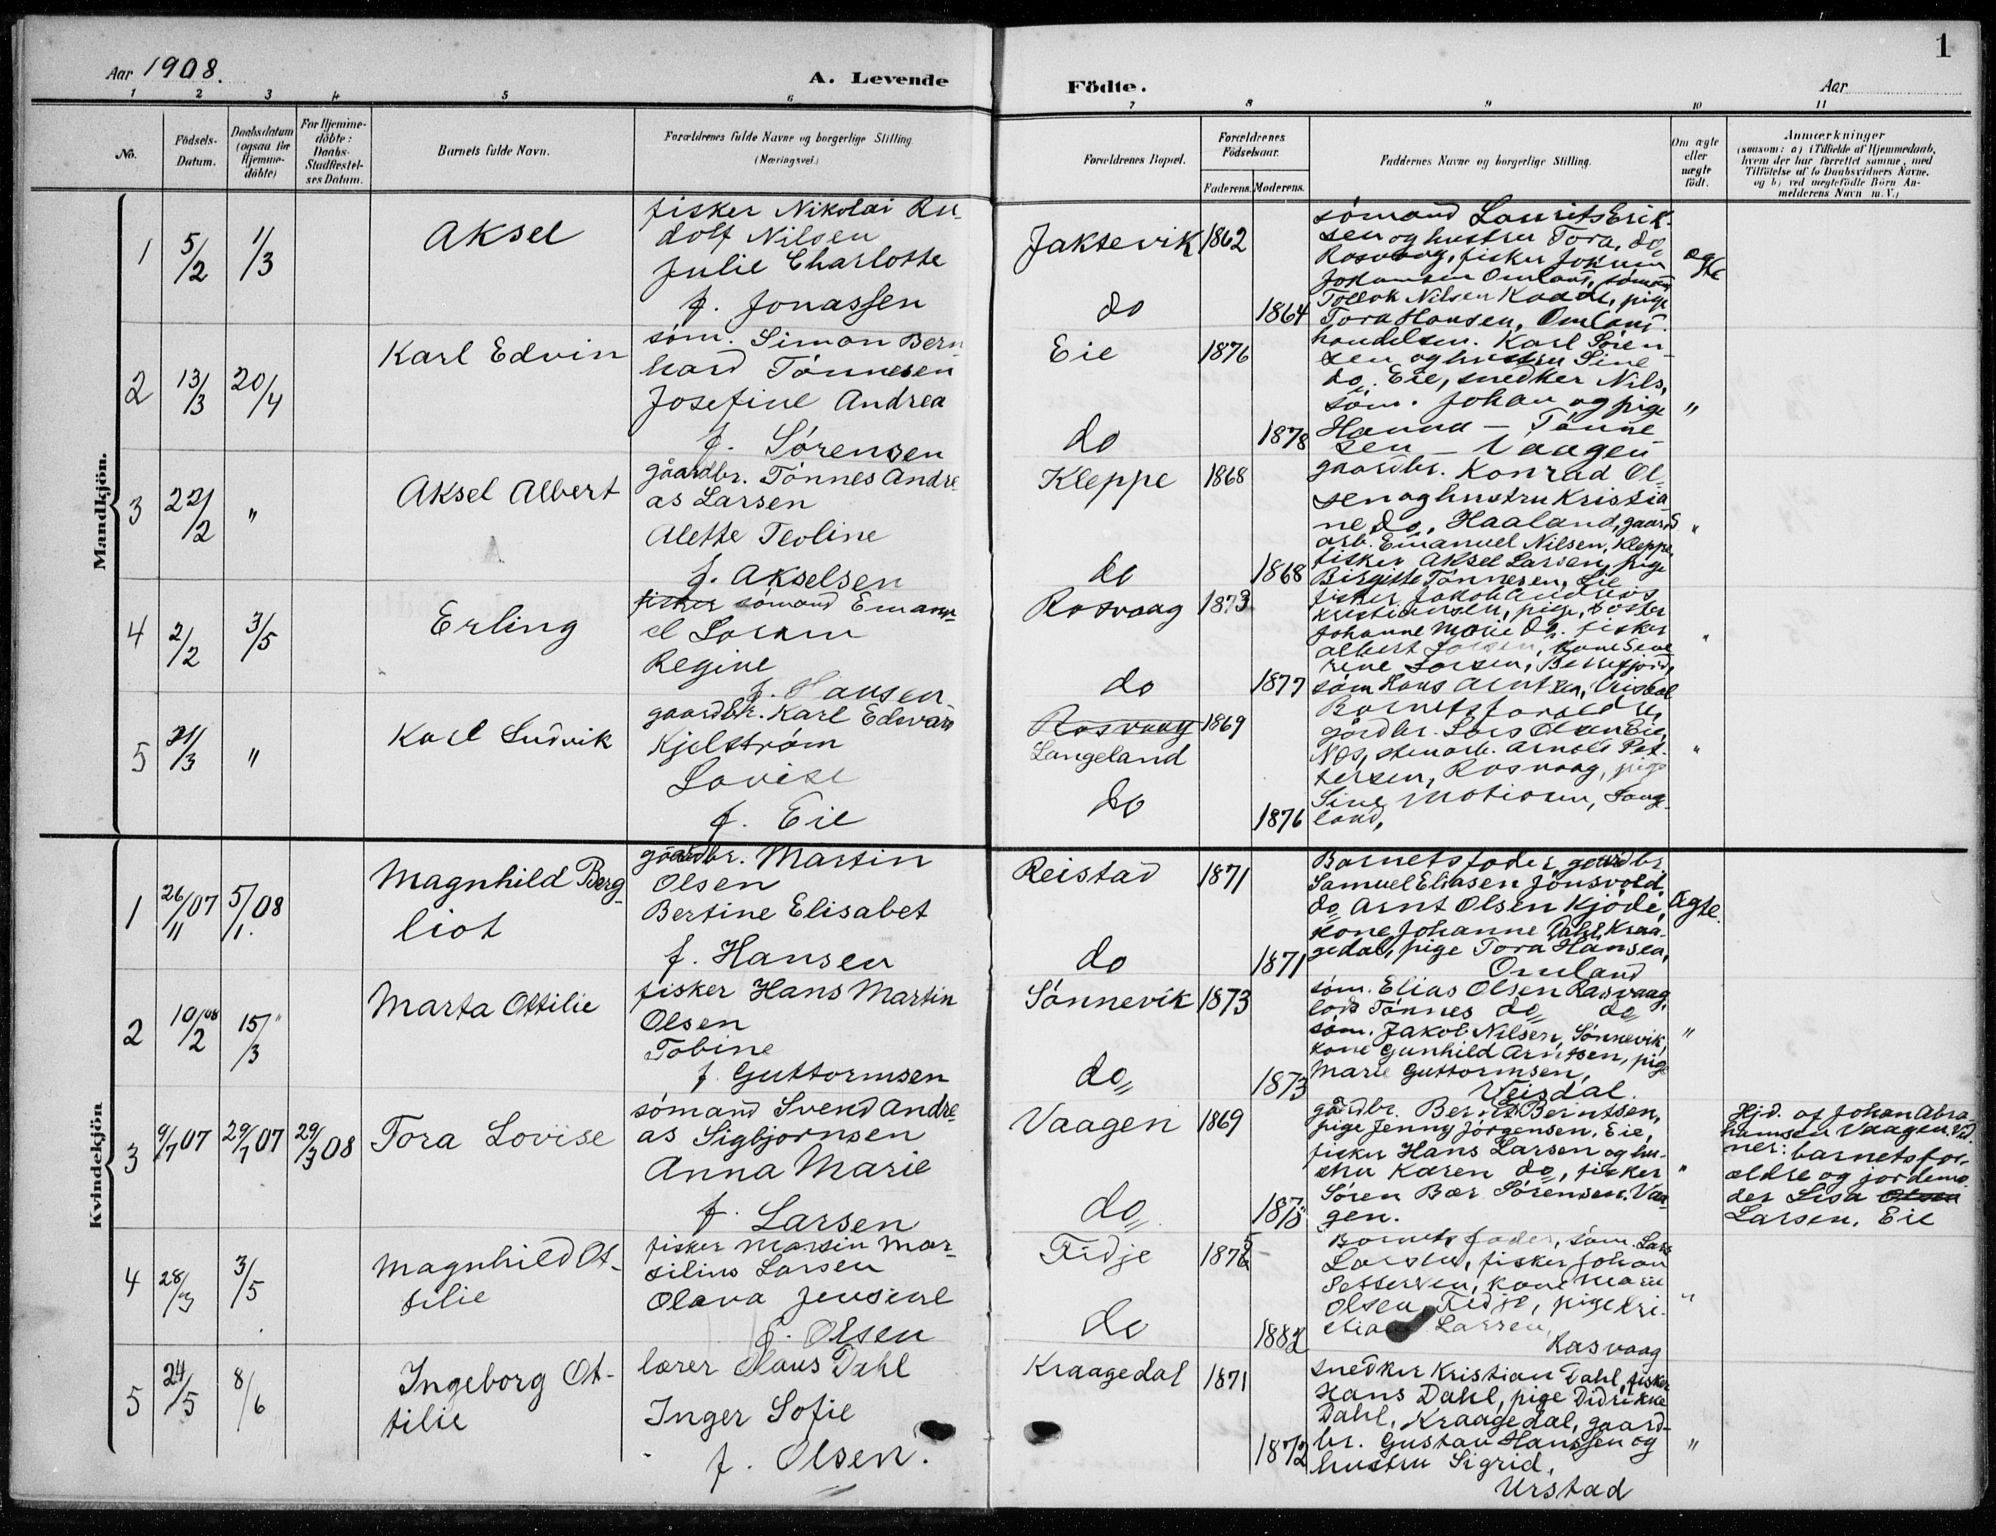 Aar 1908.
A. Levende
Födte.
Aar
1
1
2
3
4
5
6
7
8
9
10
11
No.
Födsels-
Datum.
Daabsdatum
(ogsaa for
Hjemme-
döbte)
For Hjemme-
döbte:
Daabs-
Stadfæstel-
ses Datum.
Barnets fulde Navn.
Forældrenes fulde Navne og borgerlige Stilling.
(Næringsvei.)
Forældrenes Bopæl.
Forældrenes
Födselsaar.
Faderens.
Moderens.
Faddernes Navne og borgerlige Stilling.
Om ægte
eller
uægte
født.
Anmærkninger
(saasom: a) i Tilfælde af Hjemmedaab,
hvem der har forrettet samme, med
Tilföielse af to Daabsvidners Navne,
og b) ved uægtefödte Börn An-
melderens Navn m. V.)
Mandkjön.
1
5/2
1/3
Aksel
fisker Nikolai Ru-
dolf Nilsen
Julie Charlotte
f. Jonassen
Jaktevik
do
1862
1864
sømand Laurits Erik-
sen og hustru Tora, do
Rosvaag, fisker Jokum
Johansen Omland, sømand
Tollak Nilsen Kadde, pige
Tora Hansen, Omland.
ægte
2
13/3
20/4
Karl Edvin
søm. Simon Bern-
hard Tønnesen
Josefine Andrea
f. Sørensen
Eie
do
1876
1878
handelsm. Karl Søren-
sen og hustru Sine
do. Eie, snedker Nils,
søm. Johan og pige
Hanna — Tønne-
sen — Vaagen
"
3
22/2
"
Aksel Albert
gaardbr. Tønnes Andre-
as Larsen
Alette Teoline
f. Akselsen
Kleppe
do
1868
1868
gaardbr. Konrad Ol-
sen og hustru Kristia-
ne do, Haaland, gaards
arb. Emanuel Nilsen, Kleppe,
fisker Aksel Larsen, pige
Birgitte Tønnesen, Eie
"
4
2/2
3/5
Erling
fisker sømand Emanu-
el Larsen
Regine
f. Hansen
Rosvaag
do
1873
1877
fisker Jakob Andreas
Kristiansen, pige
Johanne Marie do. fisker
Albert Larsen, kone Seve
rine Larsen,
søm Hans Arntsen,
"
5
21/3
"
Karl Ludvik
gaardbr. Karl Edvard
Kjelstrøm
Lovise
f. Eie
Rosvaag
Langeland
do
1869
1876
Barnets forældre,
gårdbr. Lars Olsen Eie,
Arnold Pet-
tersen, Rosvaag, pige
Sine Matiasen, Lange-
land,
"
Kvindekjön
1
26/11 07
5/1. 08
Magnhild Berg-
liot
gaardbr. Martin
Olsen
Bertine Elisabet
f. Hansen
Reistad
do
1871
1871
Barnets fader, gaardbr
Samuel Eliasen Jønsvold,
do Arnt Olsen Kjøde,
kone Johanne Dahl Kraa-
gedal, pige Tora Hansen,
Omland
Ægte.
2
10/2 08
15/3 "
Marta Ottilie
fisker Hans Martin
Olsen
Tobine
f. Guttormsen
Sønnevik
do
1873
1873
søm. Elias Olsen Rasvaag,
lods Tønnes do do
søm. Jakob Nilsen, Sønnevik,
kone Gunhild Arntsen, pige
Marie Guttormsen,
Veisdal.
"
3
9/7 07
29/7 07
29/3 08
Tora Lovise
sømand Svend Andre-
as Sigbjørnsen
Anna Marie
f. Larsen
Vaagen
do
1869
1878
gårdbr. Bernt Berntsen,
pige Jenny Jørgensen, Eie,
fisker Hans Larsen og hu-
stru Karen do, fisker
Søren Bær Sørensen, Vaa-
gen.
"
Hjd. af Johan Abra-
hamsen Vaagen. Vid-
ner: barnets for-
ældre og jordemo-
der Lisa Olsen
Larsen, Eie
4
28/3
3/5
Magnhild Ot-
tilie
fisker Martin Mar-
silius Larsen
Olava Jensine
f. Olsen
Fidje
do
1875
1882
Barnets fader, søm. Lars
Larsen, fisker Johan
Pettersen, kone Marie
Olsen, Fidje, pige Kri-
Larsen,
Rasvaag
"
5
24/5
8/6
Ingeborg Ot-
tilie
lærer Olaus Dahl
Inger Sofie
f. Olsen.
Kraagedal
1871
1872
snedker Kristian Dahl, fisker
Hans Dahl, pige Didrikke
Dahl, Kraagedal, gaard-
br. Gustav Hanssen og
hustru Sigrid,
Urstad
"